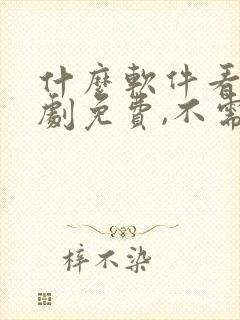 什麼軟件看
劇免費,不需
梓不染